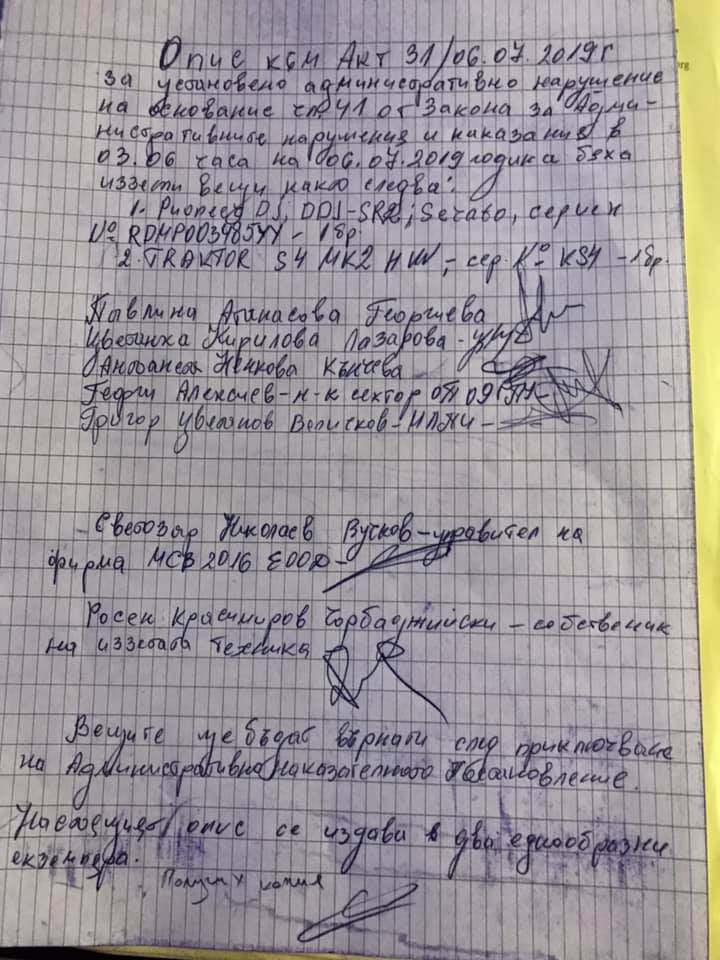 Опис към Акт 31/06.07.2019г
за установено административно нарушение
на основание чл. 41 от Закона за Адми-
нистративните нарушения и наказания в
03.06 часа на 06.07.2019 година бяха
иззети вещи както следва:
1. Pioneer DJ, DDJ-SR2; Serato, сериен
№ RDMP003485YY - 1бр.
2. TRAKTOR S4 MK2 - сер. № KS4 - 1бр.
Павлина Атанасова Георгиева
Цветанка Кирилова Лазарова -
Ненкова Кънчева
Георги Алексиев - н-к сектор
Григор Цветанов
- Светозар Николаев Вучков - управител на
фирма МСВ 2016 ЕООД -
Росен Красимиров Чорбаджийски - собственик
на иззетата техника -
Вещите ще бъдат върнати след приключване
на Административно наказателното Постановление.
Настоящият опис се издава в два еднообразни
екземпляра.
Получих копия